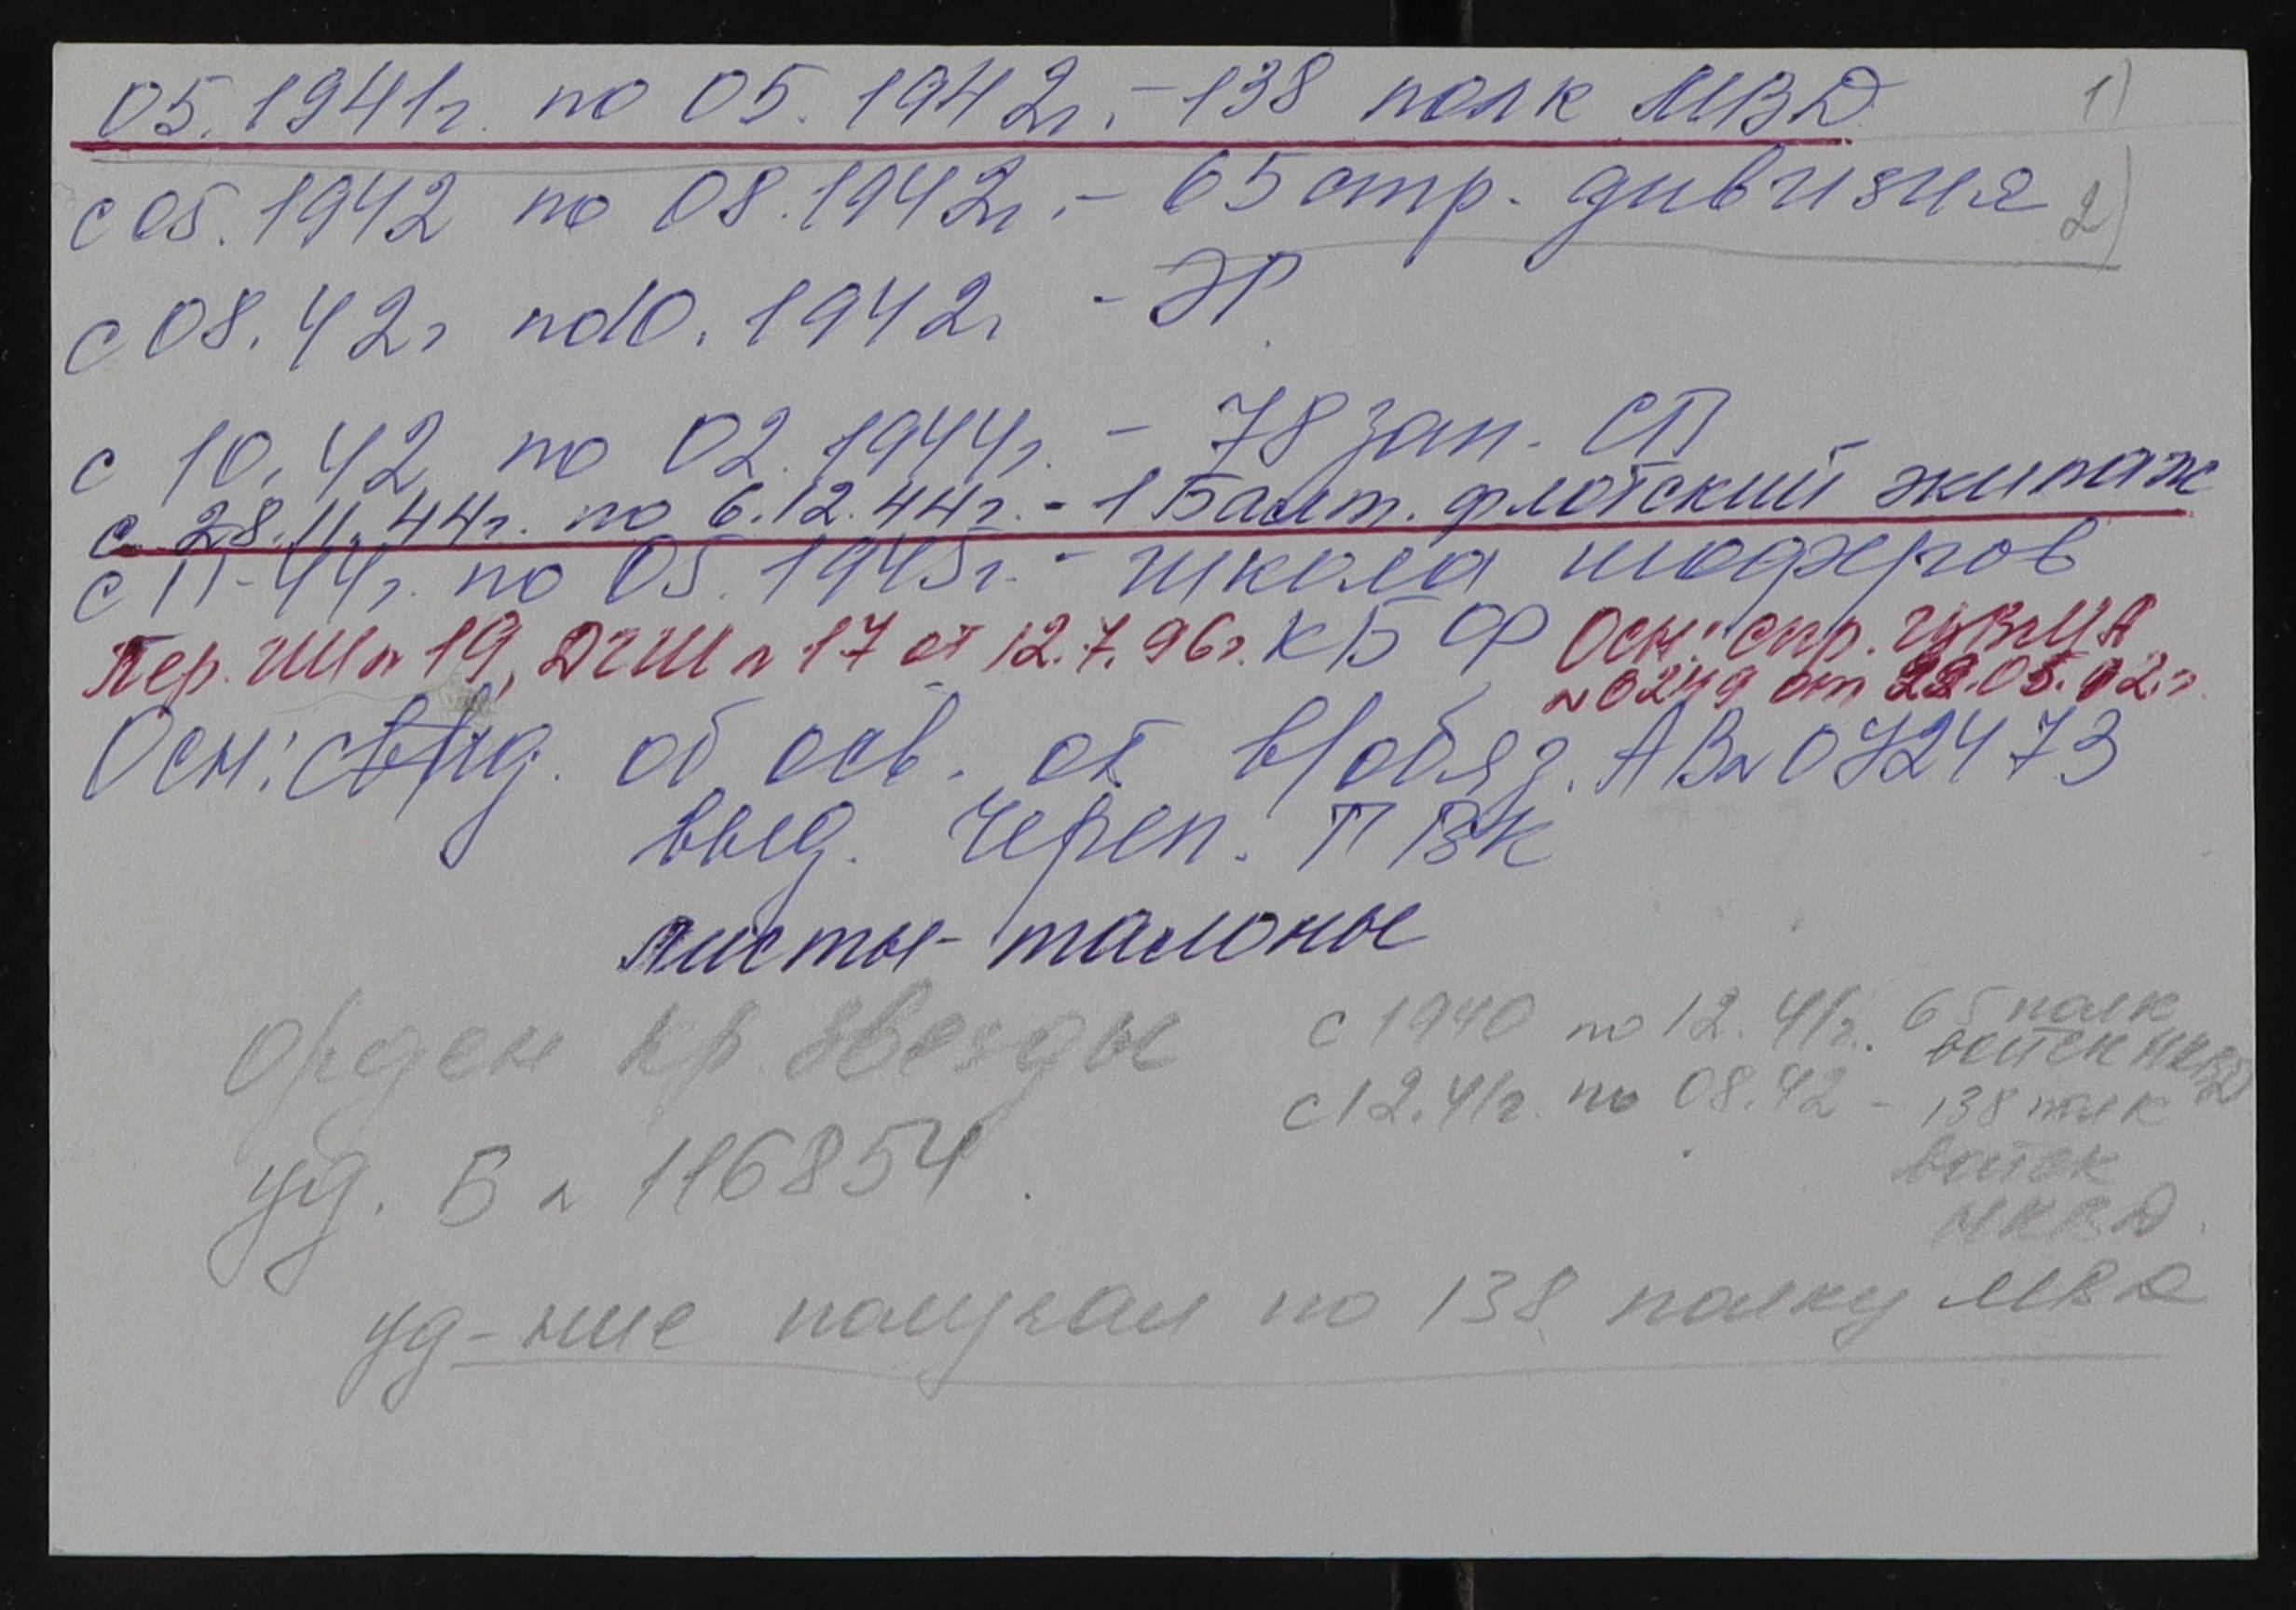 05.1941г. по 05.1942г. - 138 полк МВД 1)
с 05.1942 по 08.1942г. - 65 стр. дивизия 2)
с 08.42г по 10.1942г - ЭГ
с 10.42 по 02.1944г. - 78 зап. СП
с 28.11.44г. по 6.12.44г. - 1 Балт. флотский экипаж
с 11-44г. по 05.1945г. - школа шоферов
КБФ
Пер. ГШ № 19, ДГШ № 17 от 12.7.96г.
Осн: спр. ЦВМА
№ 0249 от 22.05.02.г.
Осн: свид. об осв. от в/обяз. АВ№ 0724 73
выд. Череп. ГВК
листы-талоны
Орден кр. звезды
уд. Б № 116854.
с 1940 по 12.41г. 65 полк
войск НКВД
с 12.41г. по 08.42 - 138 полк
войск
НКВД.
уд-ние получал по 138 полку МВД